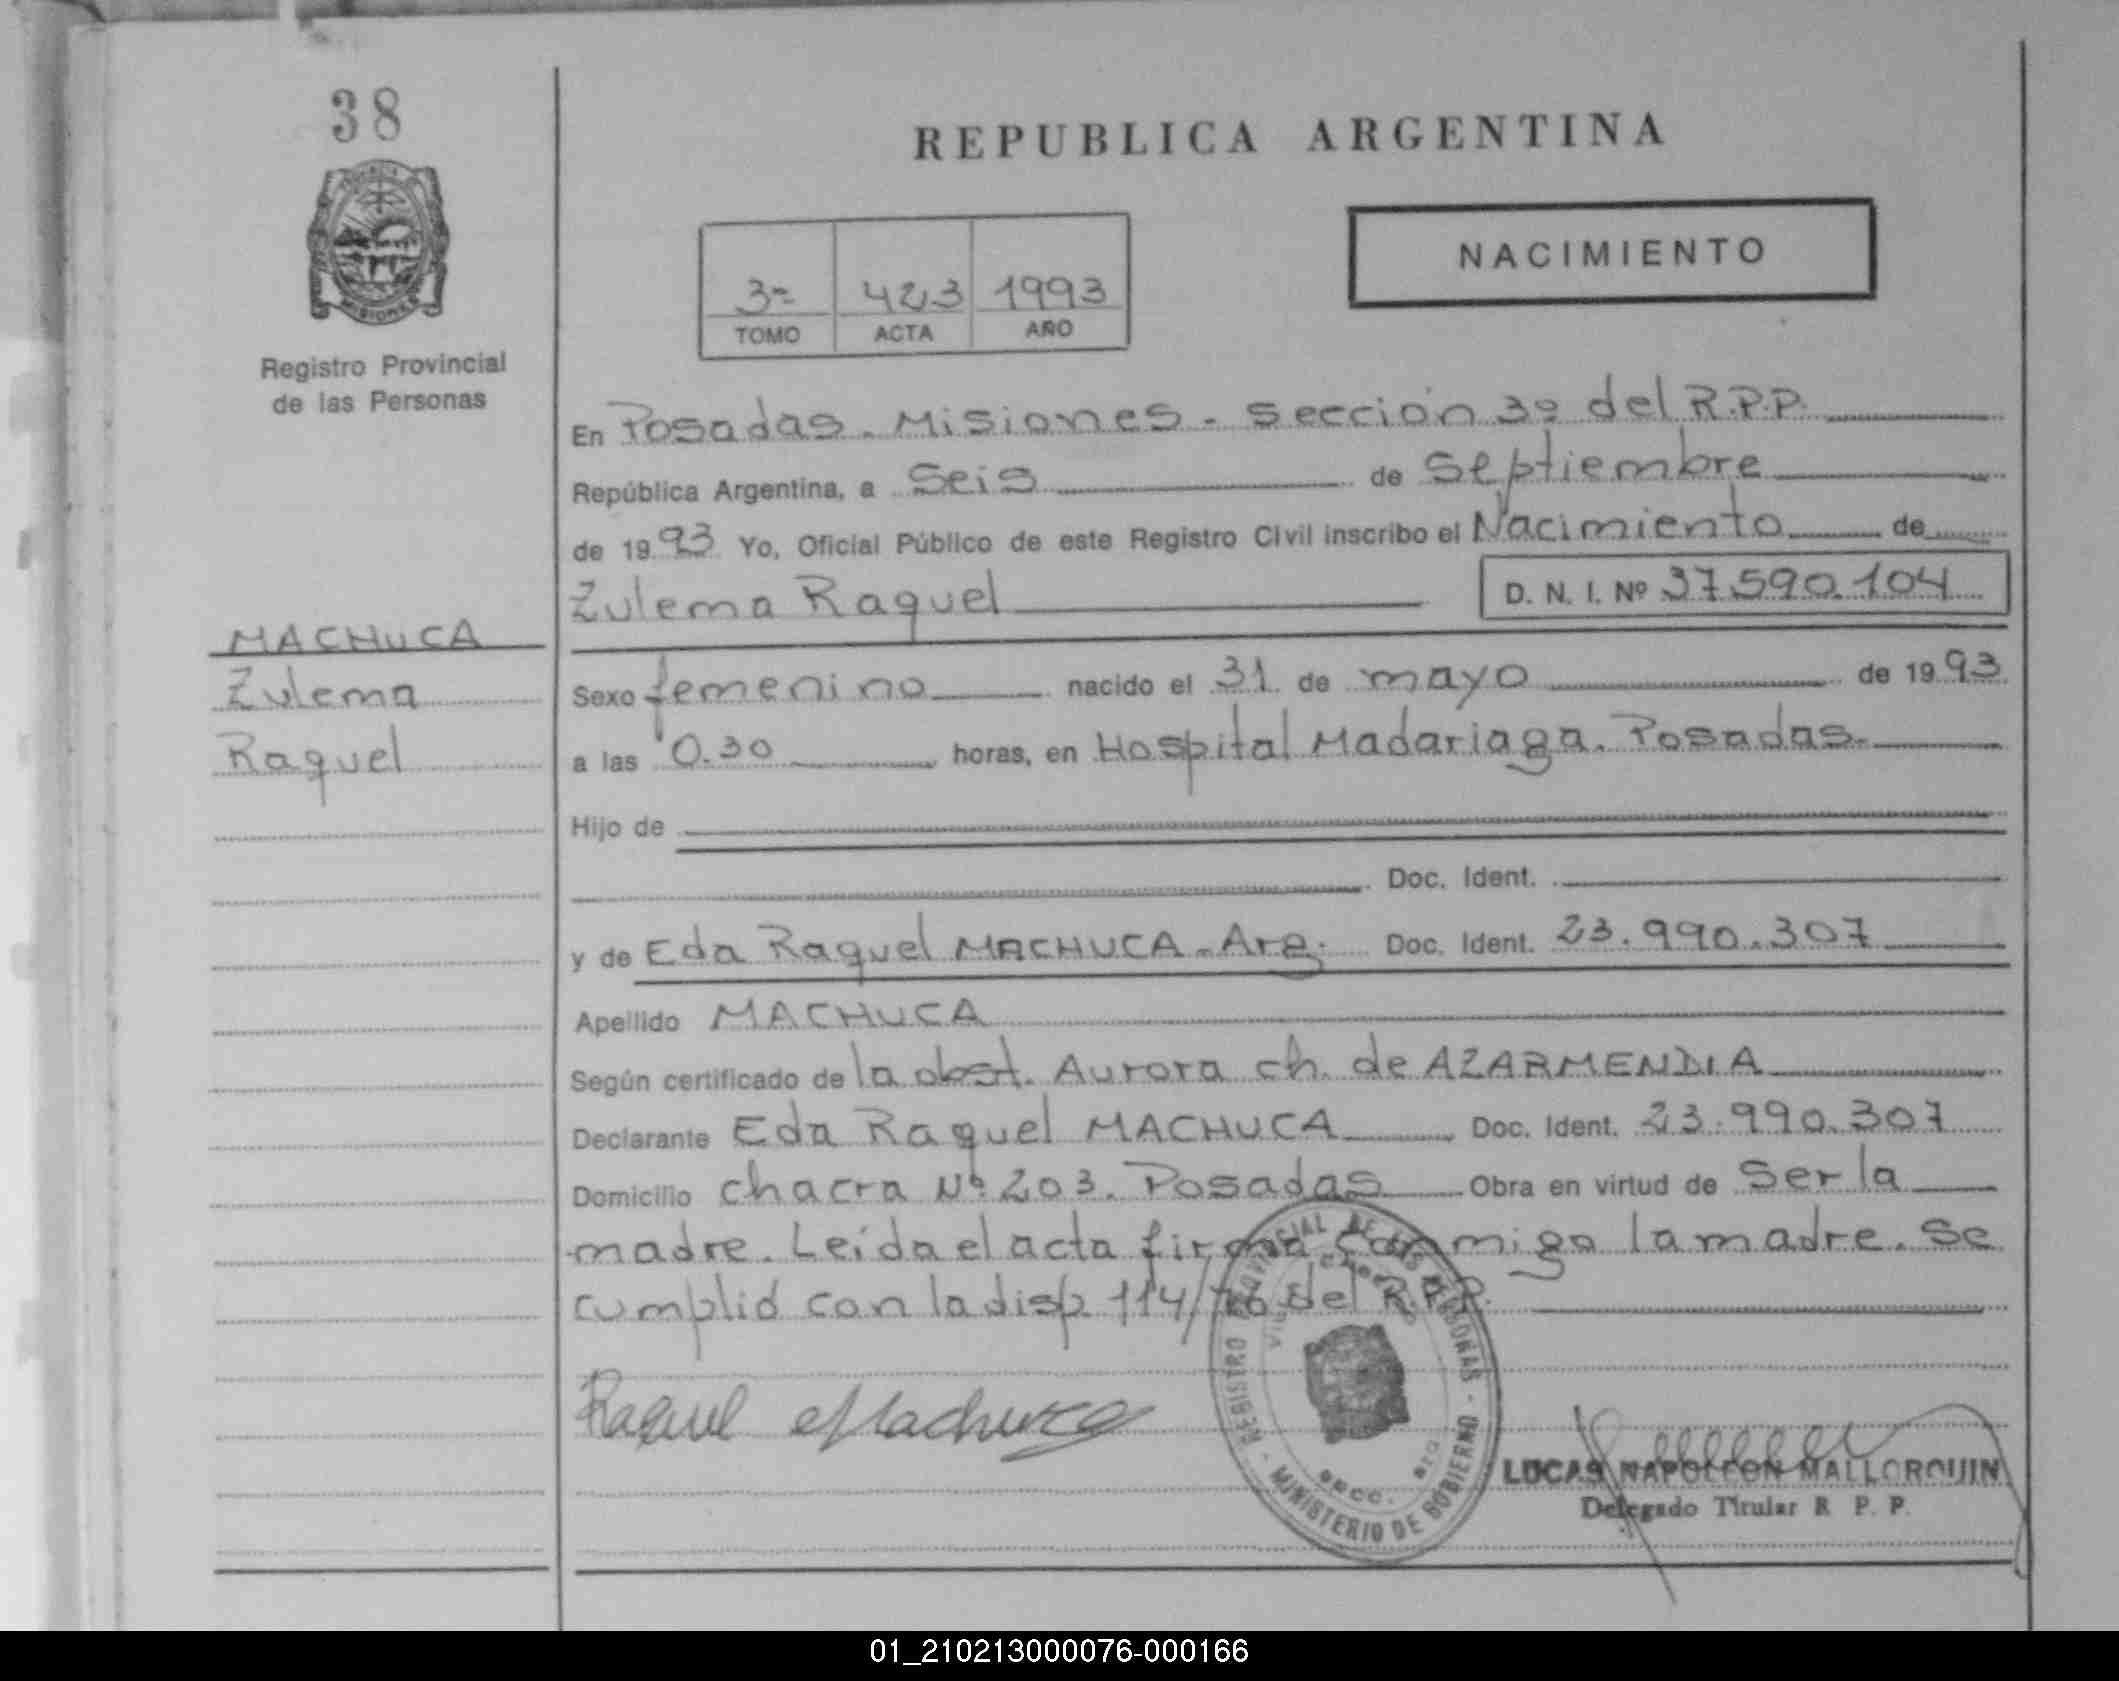 38
Registro Provincial
de las Personas
MACHUCA
Zulema
Raquel
REPUBLICA ARGENTINA
NACIMIENTO
3ª 423 1993
TOMO ACTA AÑO
En Posadas. Misiones - Sección 3º del R.P.P.
República Argentina, a Seis de Septiembre
de 1993 Yo, Oficial Público de este Registro Civil inscribo el Nacimiento de
Zulema Raquel D. N. I. Nº 37.590.104
Sexo femenino nacido el 31 de mayo de 1993
a las 0.30 horas, en Hospital Madariaga. Posadas.
Hijo de
Doc. Ident.
y de Eda Raquel MACHUCA - Arg. Doc. Ident. 23.990.307
Apellido MACHUCA
Según certificado de la obst. Aurora ch. de AZARMENDIA
Declarante Eda Raquel MACHUCA Doc. Ident. 23.990.307
Domicilio chacra Nº 203. Posadas Obra en virtud de Ser la
madre. Leída el acta firma conmigo la madre. Se
cumplió con la disp. 114/76 del R.P.P.
Raquel Machuca
REGISTRO PROVINCIAL DE LAS PERSONAS - MINISTERIO DE GOBIERNO -
SECC.
LUCAS NAPOLEON MALLORQUIN
Delegado Titular R P. P.
01_210213000076-000166